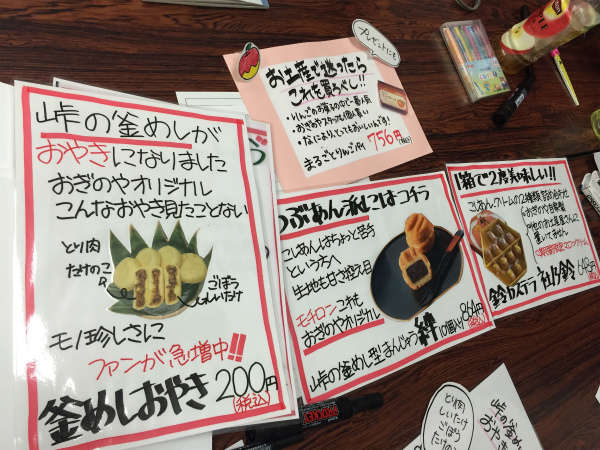 峠の釜めしが
おやきになりました
おぎのやオリジナル
こんなおやき見たことない
とり肉
たけのこ
ごぼう
しいたけ
モノ珍しさに
ファンが急増中!!
釜めしおやき 200円
(税込)
プレゼントにも
お土産で迷ったら
これを買うべし!!
・りんごのお菓子の中で一番人気
・おぎのやスタッフも個人買い
・なにより、とってもおいしいんです!
まるごとりんごパイ 756円
(税込)
つぶあん派にはコチラ
こしあんはちょっと苦手
という方へ
生地も甘さ控え目
モチロンコチラも
おぎのやオリジナル
峠の釜めし型まんじゅう 絆 10個入り 864円
(税込)
1箱で2度美味しい!!
こしあん、クリームの2種類詰め合わせ
置いてません
鈴カステラ 祖乃鈴 648円
(税込)
とり肉
しいたけ
ごぼう
たけのこ
峠の釜め
おやき